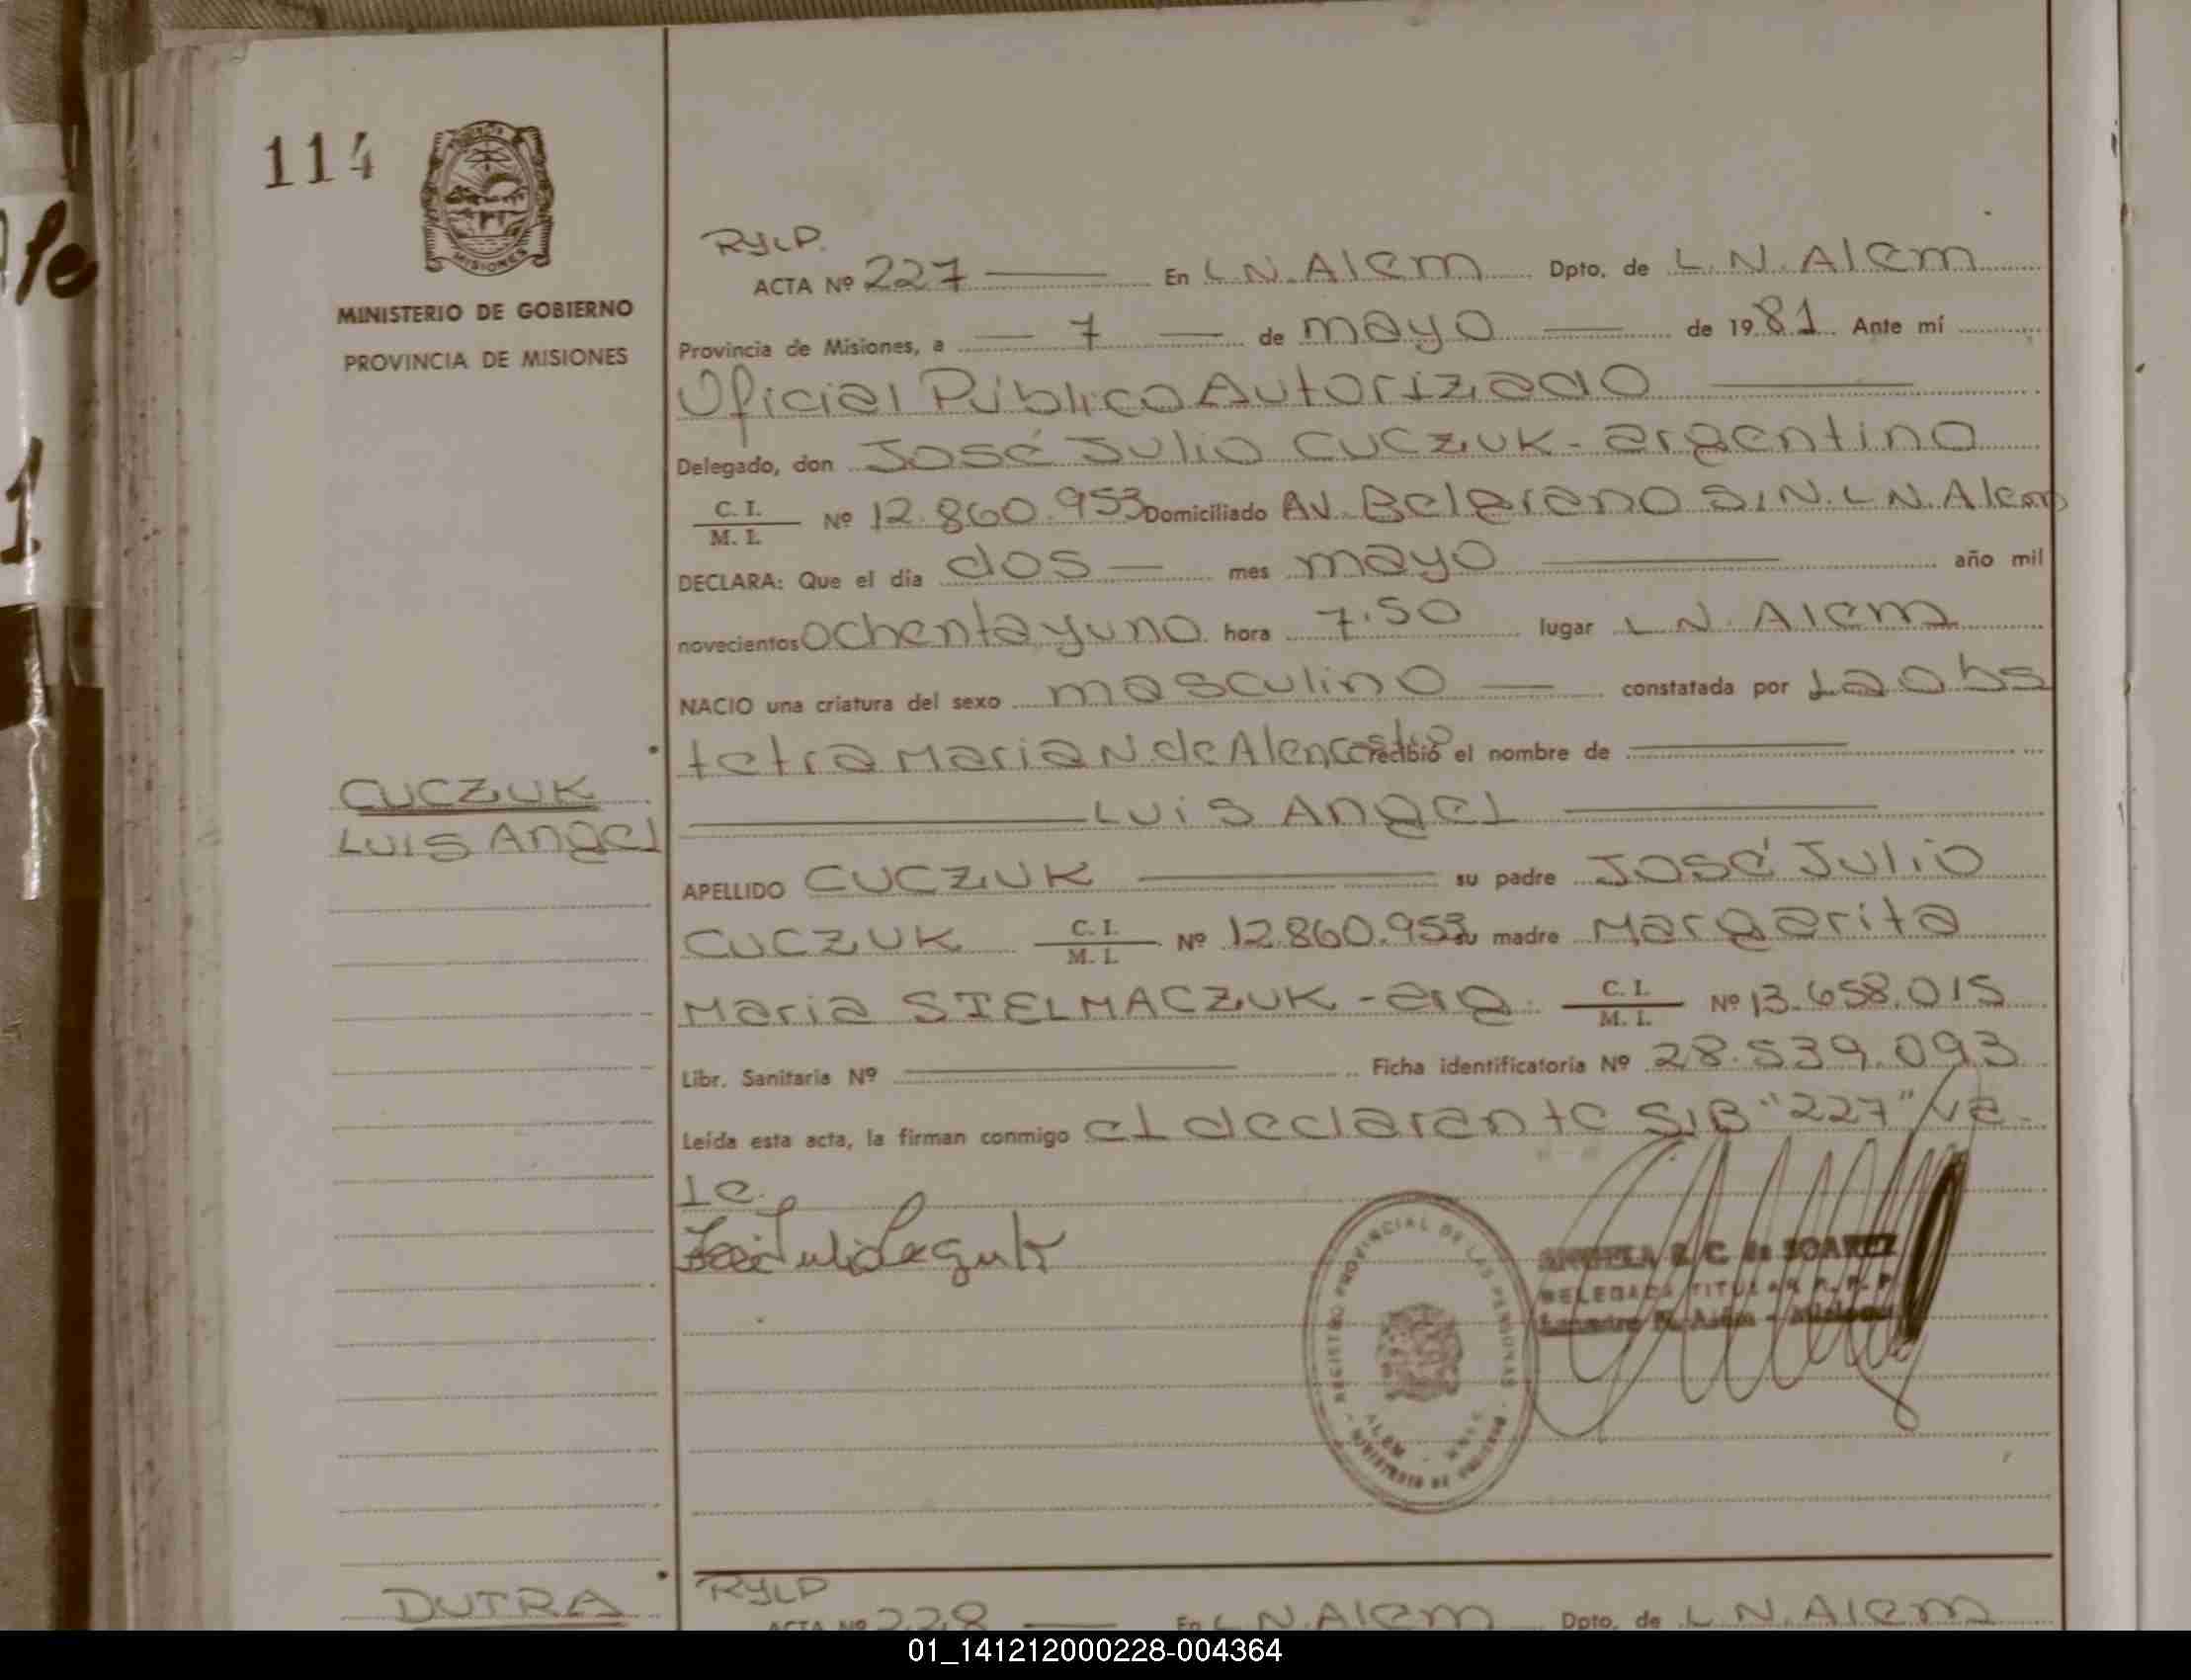 114
MISIONES
MINISTERIO DE GOBIERNO
PROVINCIA DE MISIONES
RyLP.
ACTA Nº 227 En L.N. Alem Dpto. de L.N. Alem
Provincia de Misiones, a 7 de mayo de 1981 Ante mí
Oficial Público Autorizado
Delegado, don José Julio CUCZUK - argentino
C. I. / M. I. Nº 12.860.953 Domiciliado Av. Belgrano S/N. L.N. Alem
DECLARA: Que el día dos mes mayo año mil
novecientos ochenta y uno hora 7.50 lugar L.N. Alem
NACIO una criatura del sexo masculino constatada por La obs
tetra Maria N. de Alencastro recibió el nombre de
CUCZUK
LUIS Angel
LUIS Angel
APELLIDO CUCZUK su padre José Julio
CUCZUK C. I. / M. I. Nº 12.860.953 su madre Margarita
Maria STELMACZUK - arg. C. I. / M. I. Nº 13.658.015
Libr. Sanitaria Nº Ficha identificatoria Nº 28.539.093
Leída esta acta, la firman conmigo el declarante S/B "227" Va-
le.
REGISTRO PROVINCIAL DE LAS PERSONAS
ALEM
MINISTERIO DE GOBIERNO
C. de SOAREZ
DELEGADA TITULAR R. P. P.
Leandro N. Alem - Misiones
DUTRA
RyLP
ACTA Nº 228 En L.N. Alem Dpto. de L.N. Alem
01_141212000228-004364